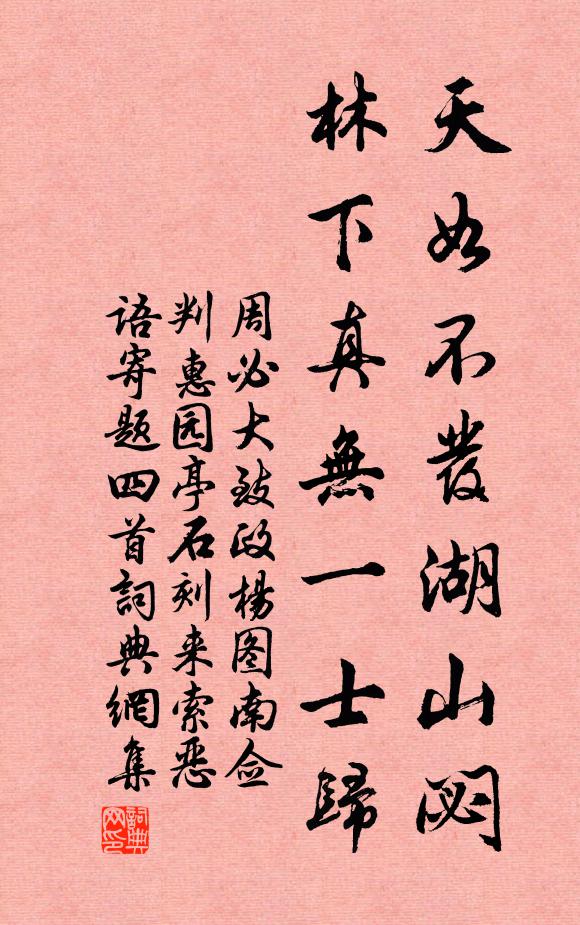 天如不發湖山閟
林下真無一士歸
周必大致政楊图南佥
判惠园亭石刻来索恶
语寄题四首詞典網集
詞典
网印